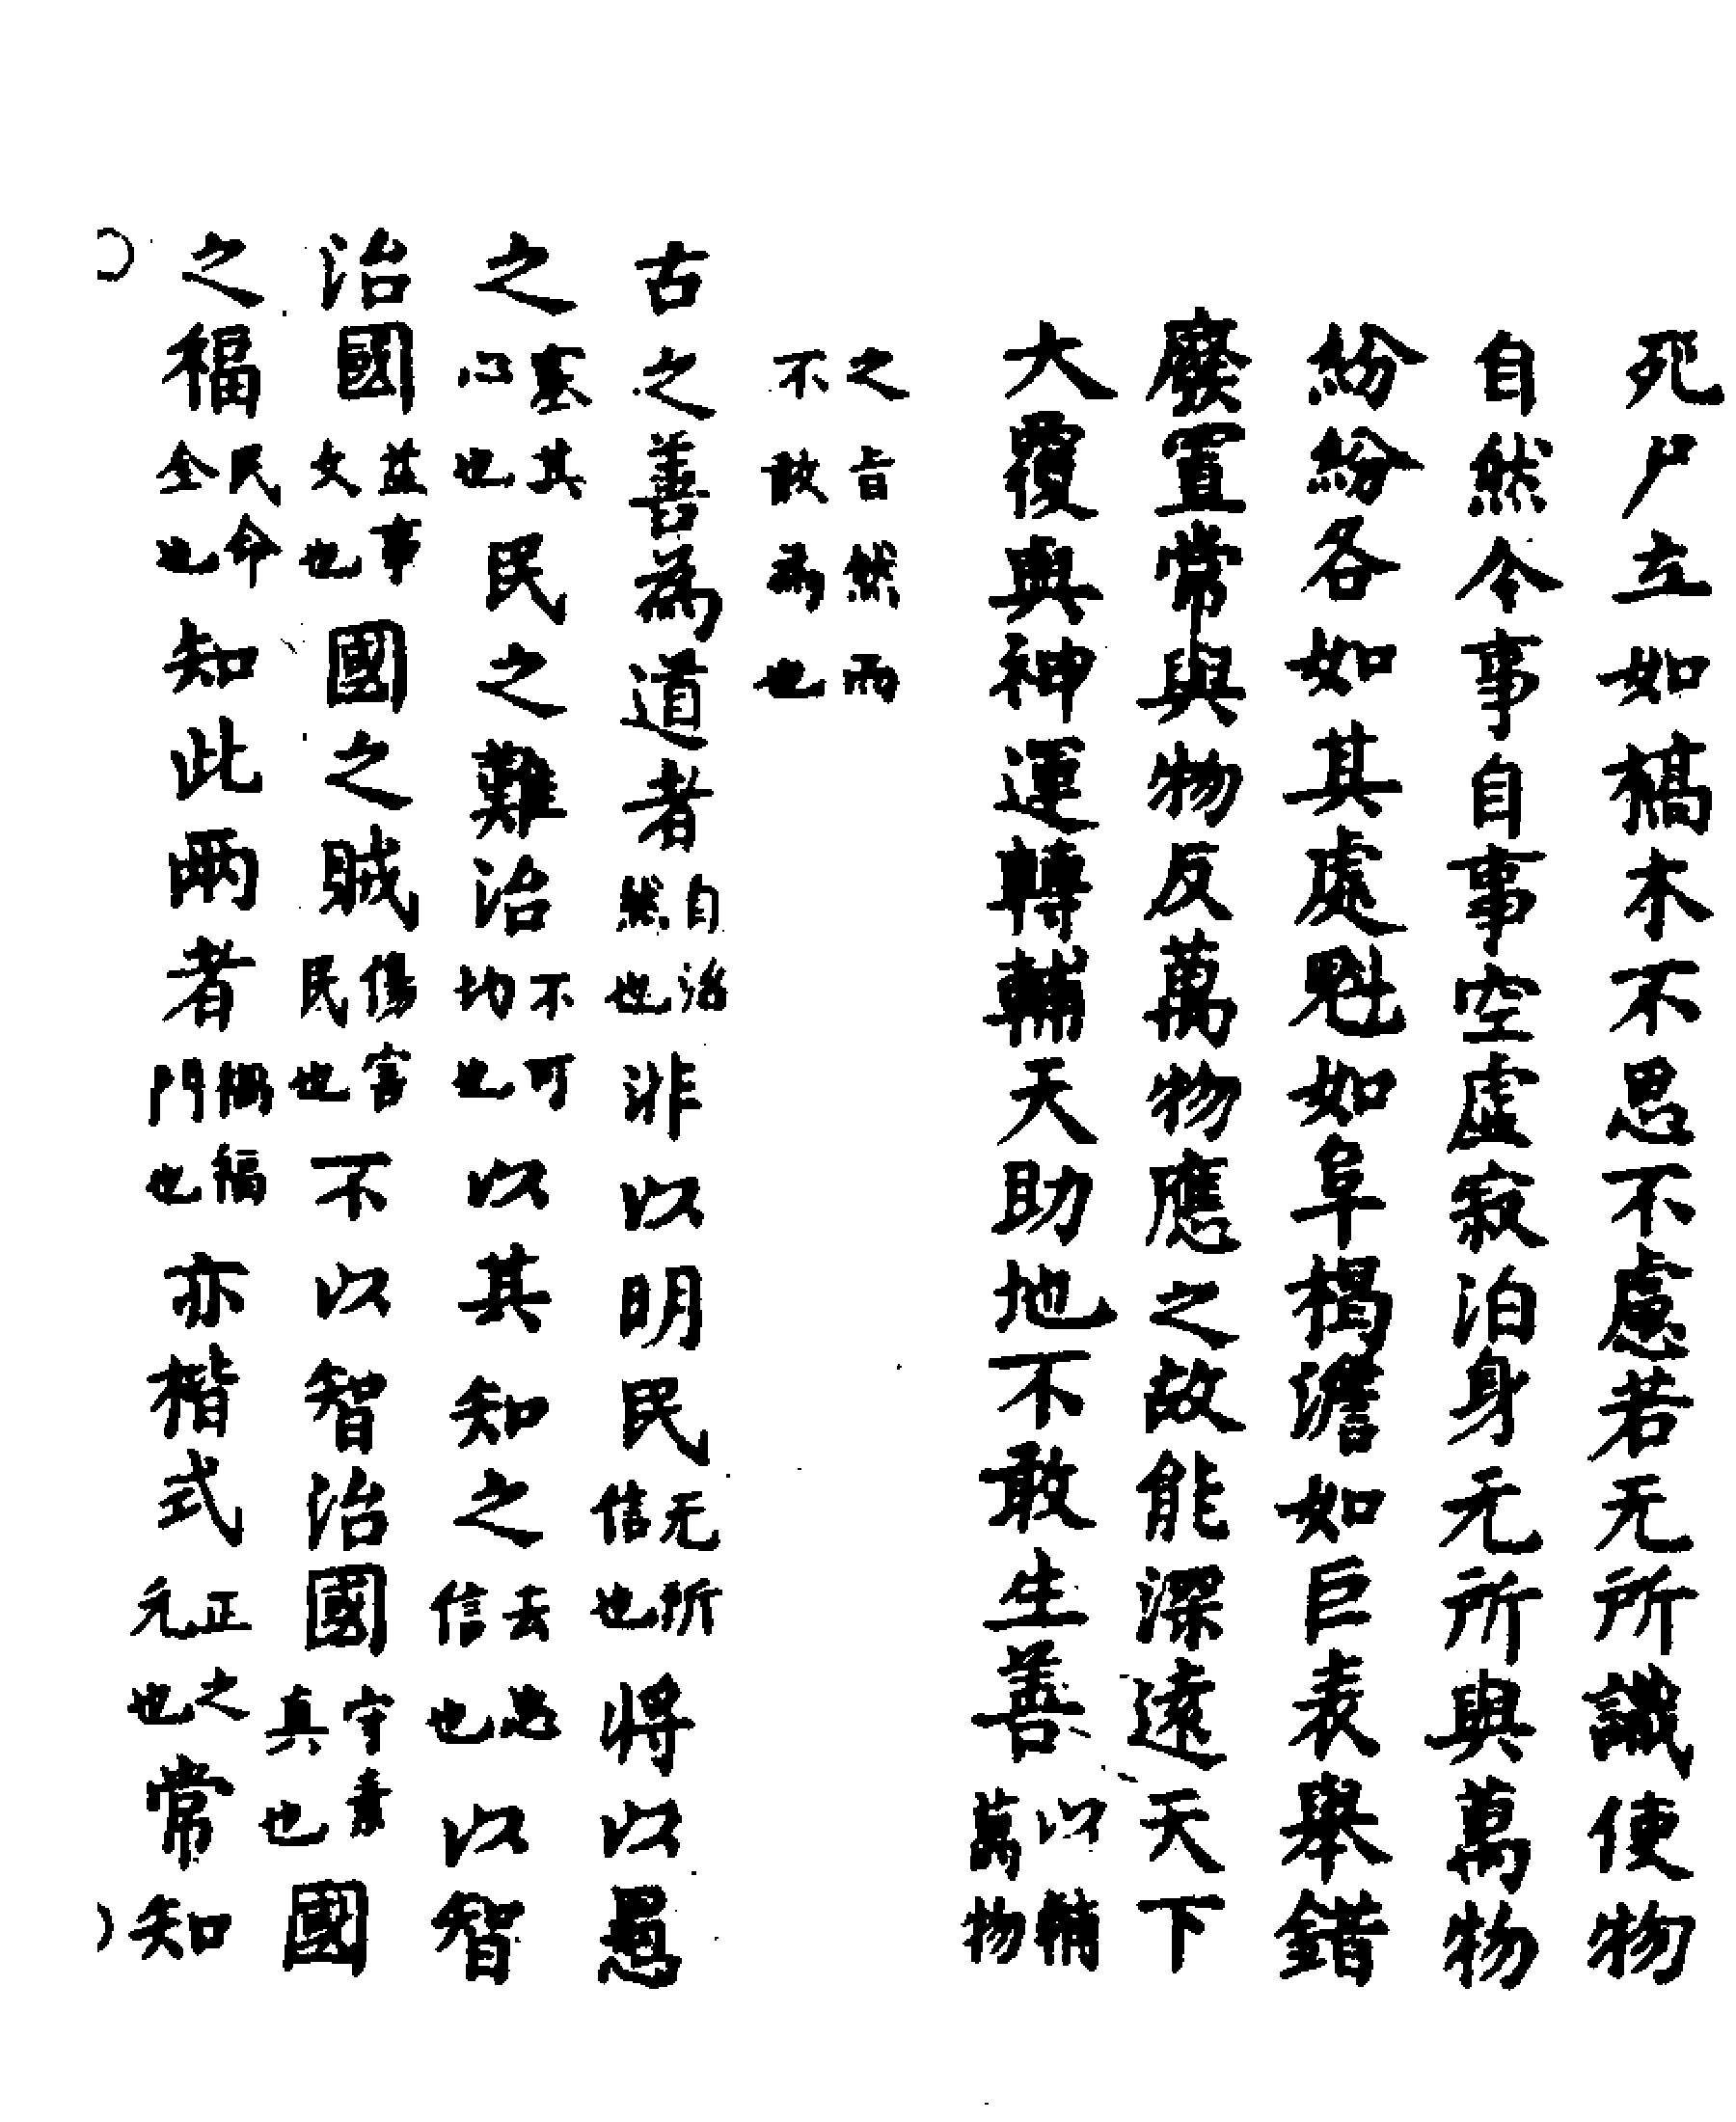 死尸立如槁木不思不慮若无所識使物
自然令事自事空虛寂泊身无所與萬物
紛紛各如其處魁如阜楬澹如巨表舉錯
廢置常與物反萬物應之故能深遠天下
大覆與神運轉輔天助地不敢生善以輔萬物
之旨然而不敢為也
古之善為道者自治然也非以明民无所信也將以愚
之塞其心也民之難治不可均也以其知之去忠信也以智
治國益事文也國之賊傷害民也不以智治國守素真也國
之福民命全也知此兩者禍福門也亦楷式正之元也常知